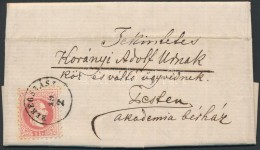 Tekintetes
Korányi Adolf Urnak
köz és váltó ügyvédnek
Pesten
akademia bérház